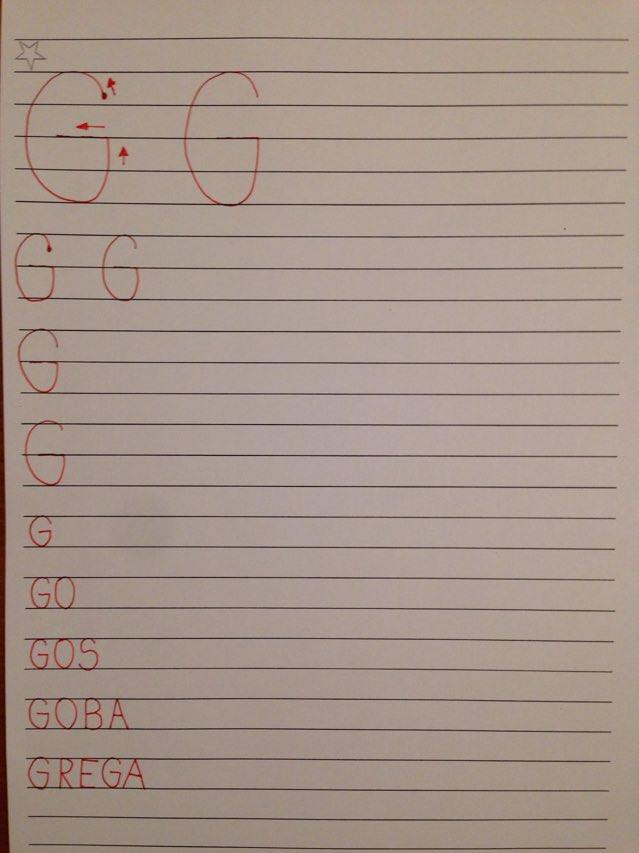 G G
G G
G
G
G
GO
GOS
GOBA
GREGA